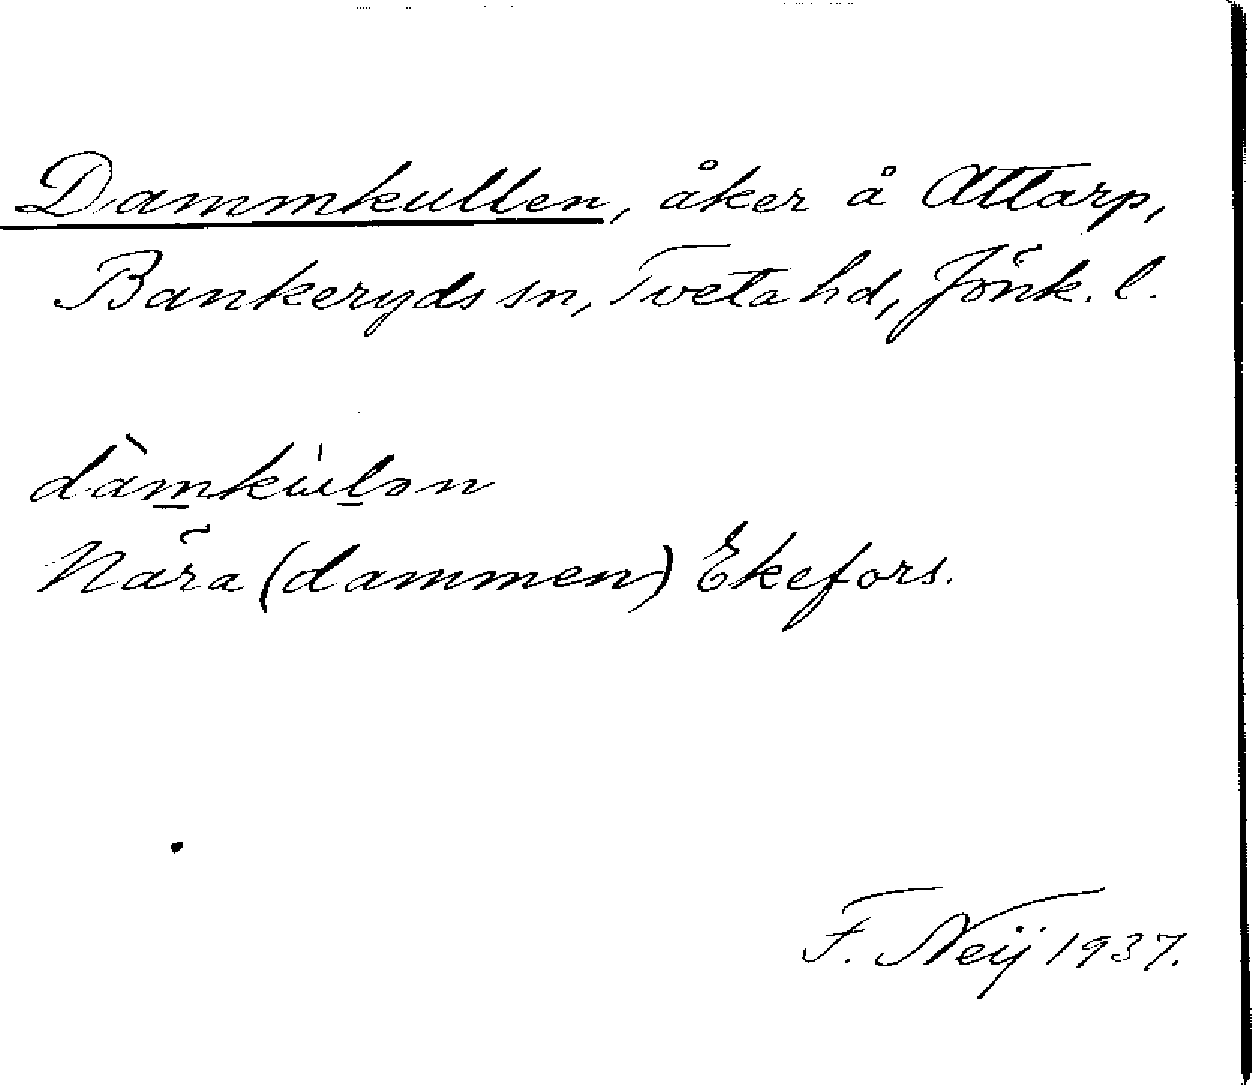 Dammkullen, åker å Attarp,
Bankeryds sn, Tveta hd, Jönk. l.
dàm̲kùl̲ən
Nära (dammen) Ekefors.
F. Neij 1937.